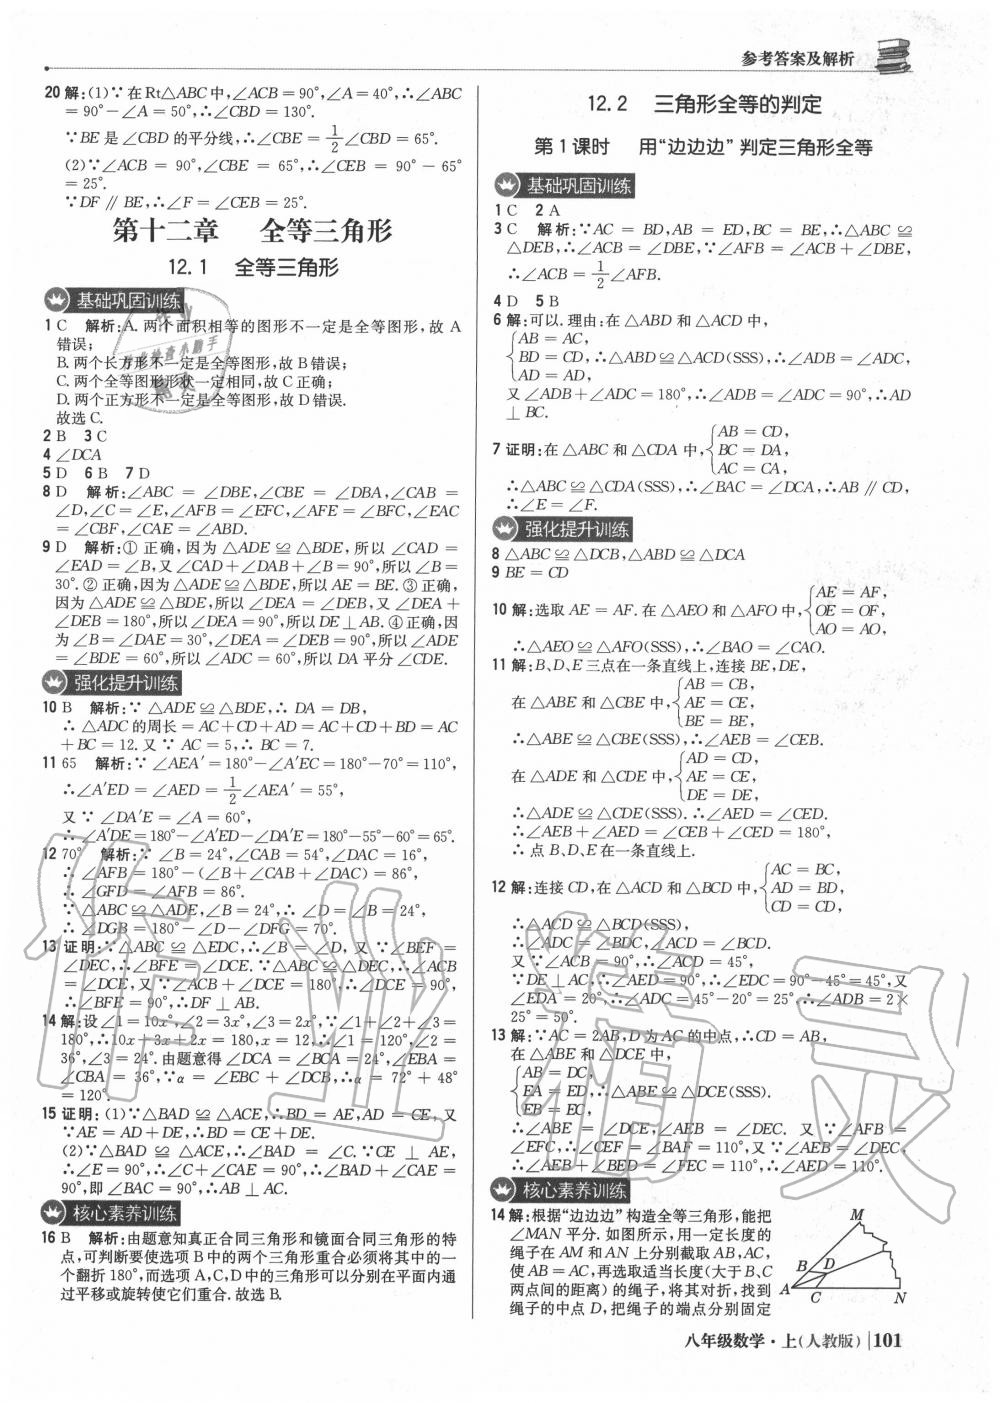 参考答案及解析
20 解:(1)∵在Rt△ABC中,∠ACB=90°,∠A=40°,∴∠ABC
=90°-∠A=50°,∴∠CBD=130°.
∵BE是∠CBD的平分线,∴∠CBE=1/2∠CBD=65°.
(2)∵∠ACB=90°,∠CBE=65°,∴∠CEB=90°-65°
=25°.
∵DF∥BE,∴∠F=∠CEB=25°.
第十二章 全等三角形
12.1 全等三角形
基础巩固训练
1 C 解析:A.两个面积相等的图形不一定是全等图形,故A
错误;
B.两个长方形不一定是全等图形,故B错误;
C.两个全等图形形状一定相同,故C正确;
D.两个正方形不一定是全等图形,故D错误.
故选C.
2 B 3 C
4 ∠DCA
5 D 6 B 7 D
8 D 解析:∠ABC=∠DBE,∠CBE=∠DBA,∠CAB=
∠D,∠C=∠E,∠AFB=∠EFC,∠AFE=∠BFC,∠EAC
=∠CBF,∠CAE=∠ABD.
9 D 解析:①正确,因为△ADE≌△BDE,所以∠CAD=
∠EAD=∠B,又∠CAD+∠DAB+∠B=90°,所以∠B=
30°.②正确,因为△ADE≌△BDE,所以AE=BE.③正确,
因为△ADE≌△BDE,所以∠DEA=∠DEB,又∠DEA+
∠DEB=180°,所以∠DEA=90°,所以DE⊥AB.④正确,因
为∠B=∠DAE=30°,∠DEA=∠DEB=90°,所以∠ADE
=∠BDE=60°,所以∠ADC=60°,所以DA平分∠CDE.
强化提升训练
10 B 解析:∵△ADE≌△BDE,∴DA=DB,
∴△ADC的周长=AC+CD+AD=AC+CD+BD=AC
+BC=12.又∵AC=5,∴BC=7.
11 65 解析:∵∠AEA′=180°-∠A′EC=180°-70°=110°,
∴∠A′ED=∠AED=1/2∠AEA′=55°,
又∵∠DA′E=∠A=60°,
∴∠A′DE=180°-∠A′ED-∠DA′E=180°-55°-60°=65°.
12 70° 解析:∵∠B=24°,∠CAB=54°,∠DAC=16°,
∴∠AFB=180°-(∠B+∠CAB+∠DAC)=86°,
∴∠GFD=∠AFB=86°.
∵△ABC≌△ADE,∠B=24°,∴∠D=∠B=24°,
∴∠DGB=180°-∠D-∠DFG=70°.
13 证明:∵△ABC≌△EDC,∴∠B=∠D,又∵∠BEF=
∠DEC,∴∠BFE=∠DCE.∵△ABC≌△DEC,∴∠ACB
=∠DCE,又∵∠ACB+∠DCE=180°,∴∠DCE=90°,
∴∠BFE=90°,∴DF⊥AB.
14 解:设∠1=10x°,∠2=3x°,∠3=2x°,∵∠1+∠2+∠3=
180°,∴10x+3x+2x=180,x=12,∴∠1=120°,∠2=
36°,∠3=24°.由题意得∠DCA=∠BCA=24°,∠EBA=
∠CBA=36°,∵α=∠EBC+∠DCB,∴α=72°+48°
=120°.
15 证明:(1)∵△BAD≌△ACE,∴BD=AE,AD=CE,又
∵AE=AD+DE,∴BD=CE+DE.
(2)∵△BAD≌△ACE,∴∠BAD=∠C.∵CE⊥AE,
∴∠E=90°,∴∠C+∠CAE=90°,∴∠BAD+∠CAE=
90°,即∠BAC=90°,∴AB⊥AC.
核心素养训练
16 B 解析:由题意知真正合同三角形和镜面合同三角形的特
点,可判断要使选项B中的两个三角形重合必须将其中的一
个翻折180°,而选项A,C,D中的三角形可以分别在平面内通
过平移或旋转使它们重合.故选B.
12.2 三角形全等的判定
第1课时 用“边边边”判定三角形全等
基础巩固训练
1 C 2 A
3 C 解析:∵AC=BD,AB=ED,BC=BE,∴△ABC≌
△DEB,∴∠ACB=∠DBE,∵∠AFB=∠ACB+∠DBE,
∴∠ACB=1/2∠AFB.
4 D 5 B
6 解:可以.理由:在△ABD和△ACD中,
AB=AC,
BD=CD,∴△ABD≌△ACD(SSS),∴∠ADB=∠ADC,
AD=AD,
又∠ADB+∠ADC=180°,∴∠ADB=∠ADC=90°,∴AD
⊥BC.
AB=CD,
7 证明:在△ABC和△CDA中,BC=DA,
AC=CA,
∴△ABC≌△CDA(SSS),∴∠BAC=∠DCA,∴AB∥CD,
∴∠E=∠F.
强化提升训练
8 △ABC≌△DCB,△ABD≌△DCA
9 BE=CD
AE=AF,
10 解:选取AE=AF.在△AEO和△AFO中,OE=OF,
AO=AO,
∴△AEO≌△AFO(SSS),∴∠BAO=∠CAO.
11 解:B、D、E三点在一条直线上,连接BE,DE,
AB=CB,
在△ABE和△CBE中,AE=CE,
BE=BE,
∴△ABE≌△CBE(SSS),∴∠AEB=∠CEB.
AD=CD,
在△ADE和△CDE中,AE=CE,
DE=DE,
∴△ADE≌△CDE(SSS).∴∠AED=∠CED.
∴∠AEB+∠AED=∠CEB+∠CED=180°,
∴点B、D、E在一条直线上.
AC=BC,
12 解:连接CD,在△ACD和△BCD中,AD=BD,
CD=CD,
∴△ACD≌△BCD(SSS),
∴∠ADC=∠BDC,∠ACD=∠BCD.
又∵∠ACB=90°,∴∠ACD=45°,
∵DE⊥AC,∴∠AED=90°,∴∠EDC=90°-45°=45°,又
∠EDA=20°,∴∠ADC=45°-20°=25°,∴∠ADB=2×
25°=50°.
13 解:∵AC=2AB,D为AC的中点,∴CD=AB,
在△ABE和△DCE中,
AB=DC,
EA=ED,∴△ABE≌△DCE(SSS).
EB=EC,
∴∠ABE=∠DCE,∠AEB=∠DEC.又∵∠AFB=
∠EFC,∴∠CEF=∠BAF=110°,又∵∠AEB=∠DEC,
∴∠AEB+∠BED=∠FEC=110°,∴∠AED=110°.
核心素养训练
14 解:根据“边边边”构造全等三角形,能把
∠MAN平分.如图所示,用一定长度的
绳子在AM和AN上分别截取AB,AC,
使AB=AC,再选取适当长度(大于B、C
两点间的距离)的绳子,将其对折,找到
绳子的中点D,把绳子的端点分别固定
M
B D
A C N
八年级数学·上(人教版) 101
作业精灵